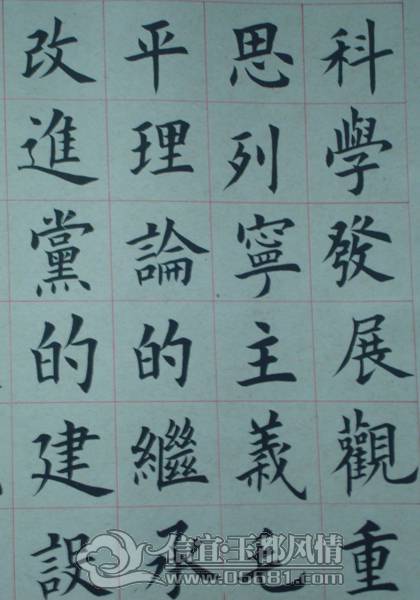 科學發展觀重
思列寧主義毛
平理論的繼承
改進黨的建設
信宜·玉都风情
www.06681.com